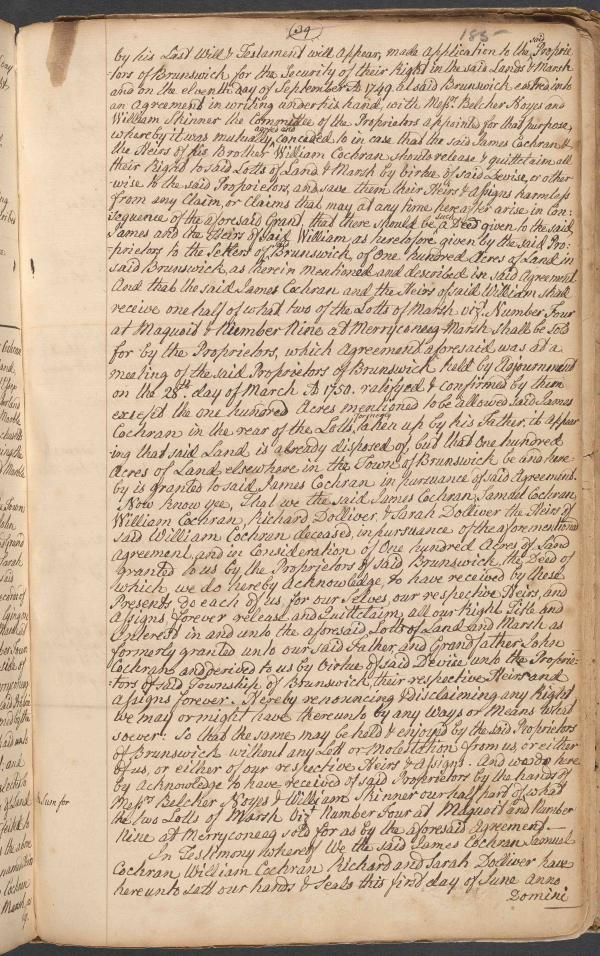 (94)
185
by his Last Will & Testament will appear, made Application to the said Proprie-
tors of Brunswick for the Security of their Right in the said Lands & Marsh
and on the eleventh day of September Ao 1749. at said Brunswick entred into
an Agreement in writing under his hand, with Messrs. Belcher Noyes and
William Skinner the Committee of the Proprietors appointed for that purpose,
whereby it was mutually agreed and conceded to in case that the said James Cochran &
the Heirs of his Brother William Cochran should release & quittclaim all
their Right to said Lotts of Land & Marsh by Virtue of said Devise, or other
wise to the said Proprietors, and save them their Heirs & Assigns harmless
from any Claim, or Claims that may at any time hereafter arise in Con-
sequence of the aforesaid Grant, that there should be a such Deed given to the said
James and the Heirs of said William, as heretofore given by the said Pro-
prietors to the Setlers of said Brunswick, of One hundred Acres of Land in
said Brunswick, as herein mentioned and described in said Agreement
And that the said James Cochran and the Heirs of said William shall
receive one half of what two of the Lotts of Marsh vizt. Number Four
at Maquoit & Number Nine at Merryconeeg Marsh shall be Sold
for by the Proprietors, which Agreement aforesaid was at a
meeting of the said Proprietors of Brunswick held by Adjournment
on the 28th. day of March Ao 1750. ratifyed & confirmed by them
except the one hundred Acres mentioned to be allowed said James
Cochran in the rear of the Lotts formerly taken up by his Father, it appear
ing that said Land is already disposed of, but that One hundred
Acres of Land elsewhere in the Town of Brunswick be and here-
by is granted to said James Cochran in pursuance of said Agreement.
Now know yee, That we the said James Cochran, Samuel Cochran,
William Cochran, Richard Dolliver, & Sarah Dolliver the Heirs of
said William Cochran deceased, in pursuance of the aforementioned
Agreement, and in Consideration of One hundred Acres of Land
granted to us by the Proprietors of said Brunswick, the Deed of
which, we do hereby Acknowledge, to have received by these
Presents Do each of us for our Selves, our respective Heirs, and
Assigns, forever release, and Quittclaim, all our Right Title and
Interest in and unto the aforesaid Lotts of Land and Marsh as
formerly granted unto our said Father and Grandfather John
Cochran, and derived to us by Virtue of said Devise, unto the Proprie-
tors of said Township of Brunswick, their respective Heirs and
Assigns forever. Hereby renouncing & disclaiming any Right
we may or might have thereunto by any ways or Means what
soever: So that the same may be held & enjoyed by the said Proprietors
of Brunswick without any Lett or Molestation from us, or either
of us, or either of our respective Heirs & Assigns. And we do here
by Acknowledge to have received of said Proprietors by the hands of
Messrs. Belcher Noyes & William Skinner our half part of what
the two Lotts of Marsh Vizt Number Four at Maquoit and Number
Nine at Merryconeeg sold for as by the aforesaid Agreement.
In Testimony whereof We the said James Cochran Samuel
Cochran William Cochran Richard and Sarah Dolliver have
hereunto Sett our hands & Seals this first day of June Anno
Domini
Sum for